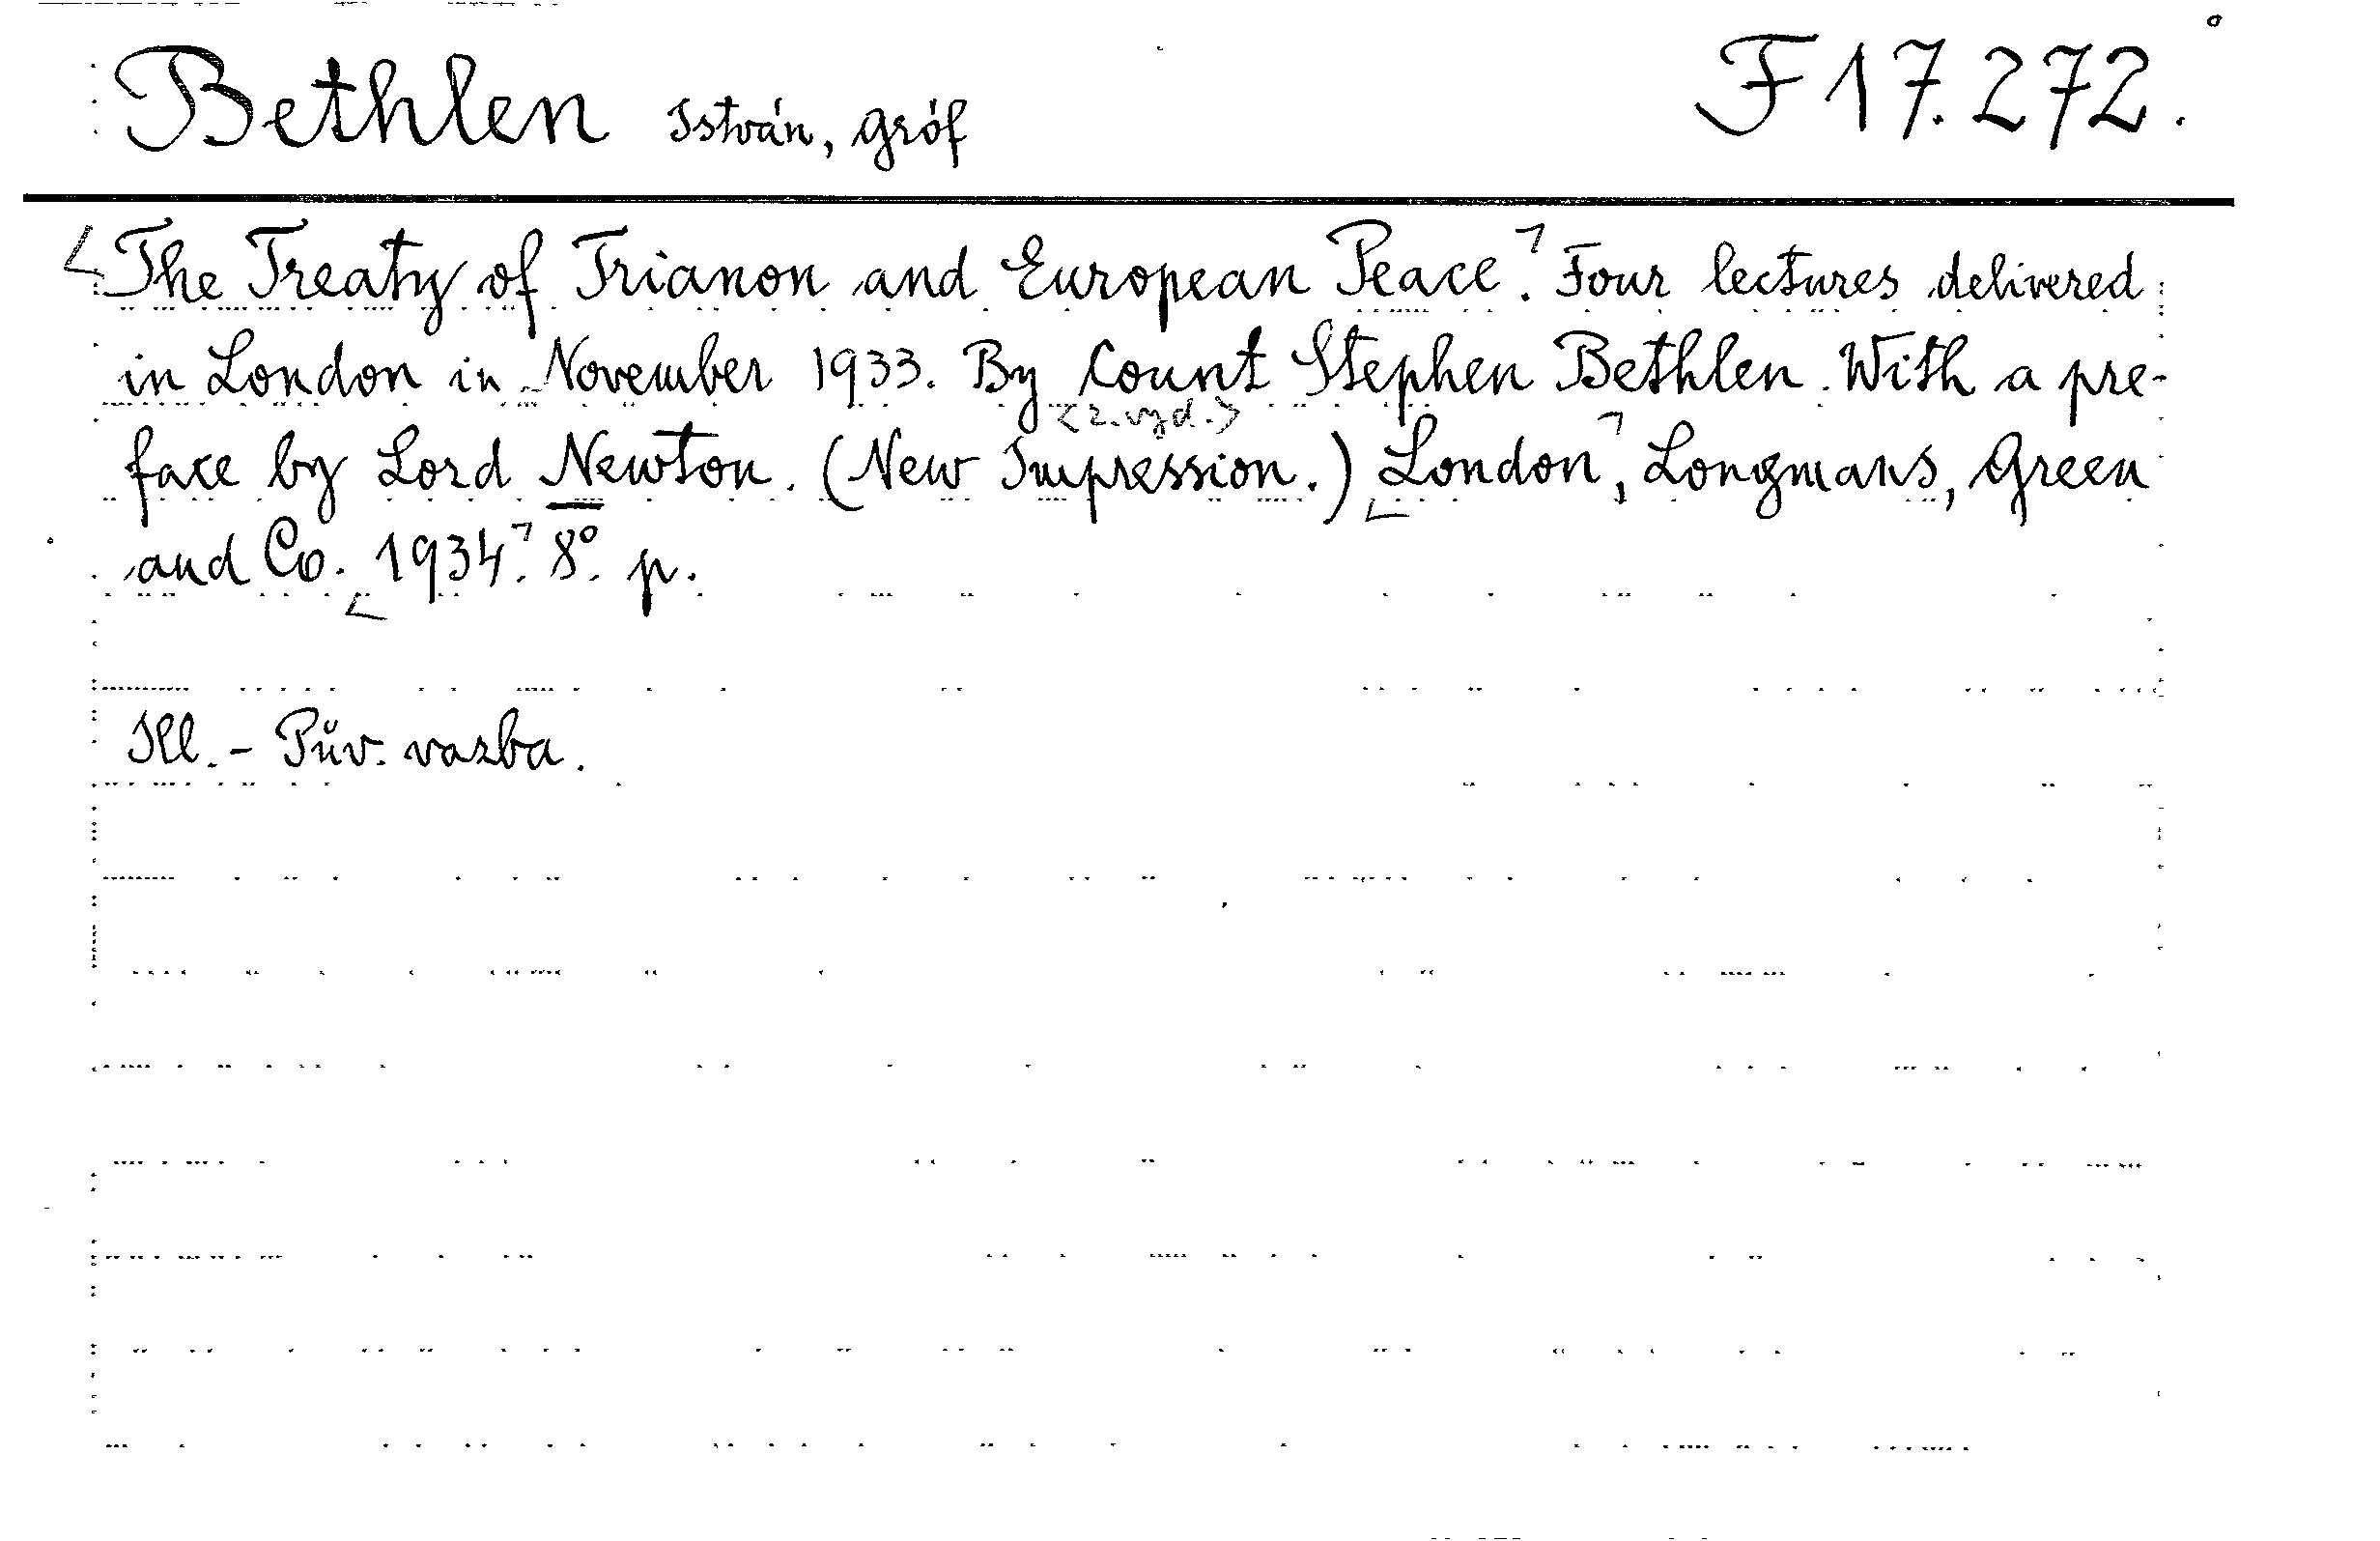 Bethlen István, gróf F 17.272.
The Treaty of Trianon and European Peace. Four lectures delivered
in London in November 1933. By Count Stephen Bethlen. With a pre-
<2. vyd.>
face by Lord Newton. (New Impression.) London, Longmans, Green
and Co. 1934. 8°. p.
Ill. - Pův. vazba.